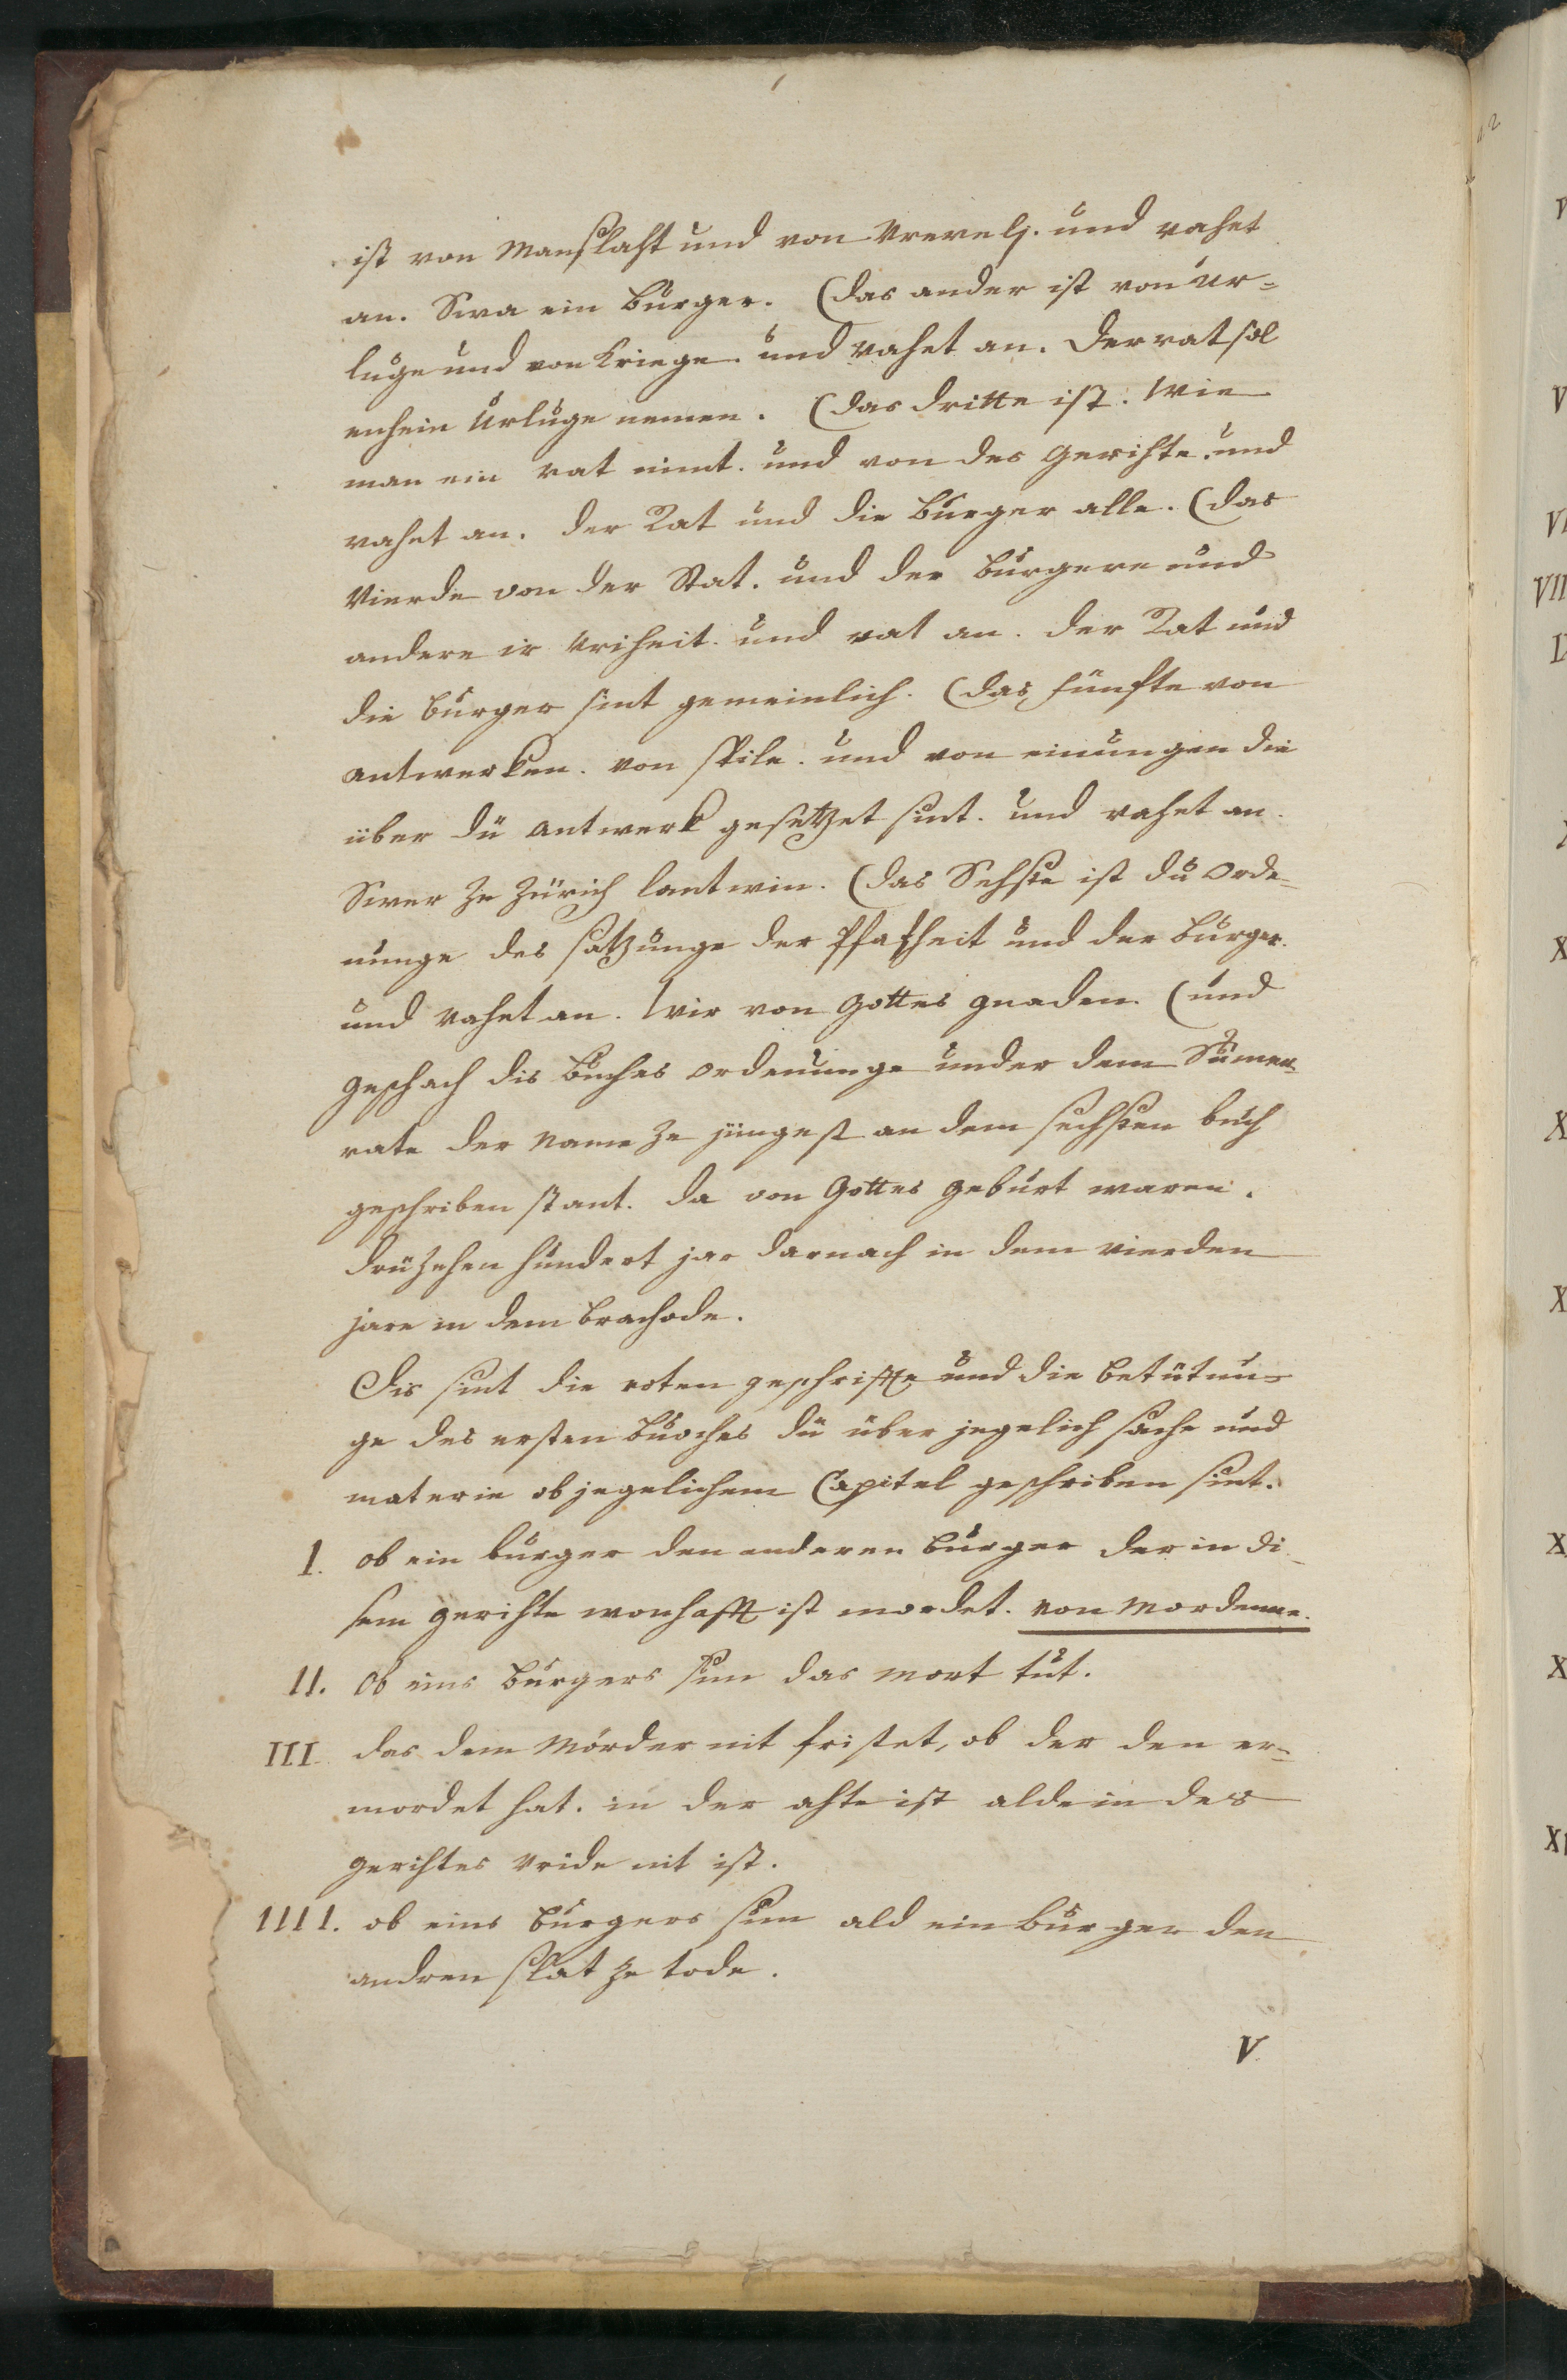 ist von Manslaht und von Vrevelj. und vahet
an. Swa ein Burger. (das ander ist von Ur=
luge und von Kriege. und vahet an. der rat sol
enhein Urluge nemen. (das dritte ist. Wie
man ein rat nimt. und von des Gerihte. und
vahet an. der Rat und die Burger alle. (das
Vierde von der Stat. und der Burgere und
andere ir Vriheit. und vat an. der Rat und
die Burger sint gemeinlich. (das fünfte von
antwerken. von spile. und von einungen die
über dü antwerk gesetzet sint. und vahet an.
Swer ze Zürich lantwin. (das Sehste ist dü Orde=
nunge des satzunge der Pfafheit und der Burger.
und vahet an. Wir von Gottes gnaden. (und
geschach dis Buches ordenunge under dem Sumer
rate der Name ze jüngest an dem sechsten buch
geschriben stant. da von Gottes geburt waren.
drüzehen hundert jar darnach in dem vierden
jare in dem Brachode.
Dis sint die roten geschrifte und die betütun=
ge des ersten Buoches dü über jegelich sache und
materie ob jegelichem Capitel geschriben sint.
I. ob ein burger den anderen burger der in di=
sem gerihte wonhafft ist mordet. von Mordenne.
II. Ob eins Burgers sun das mort tut.
III das dem Mörder nit fristet, ob der den er=
mordet hat. in der ahte ist alde in des
gerihtes vride nit ist.
IIII. ob eins Burgers sun ald ein burger den
andren slat ze tode.
V.
12